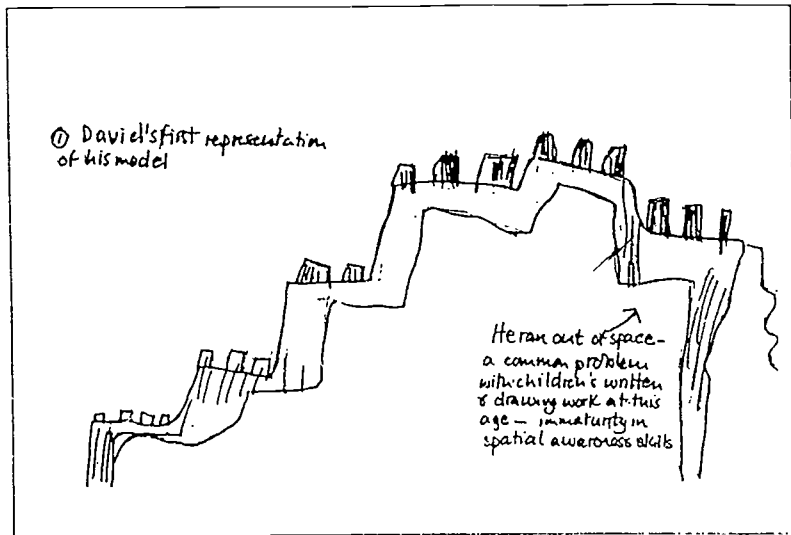 ① David's first representation
of his model
He ran out of space -
a common problem
with children's written
& drawing work at this
age - immaturity in
spatial awareness skills